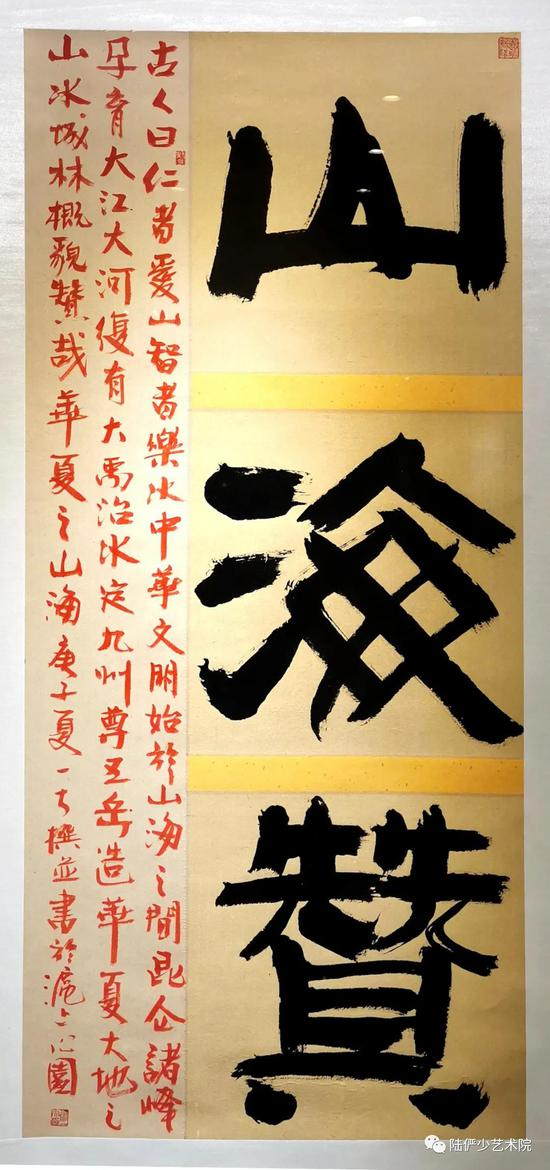 山海赞
古人曰仁者爱山智者樂水中華文明始於山海之間昆仑諸峰
孕育大江大河復有大禹治水定九州尊五岳造華夏大地之
山水城林概貌赞哉華夏之山海庚子夏一古撰並書於滬上心園
陆俨少艺术院